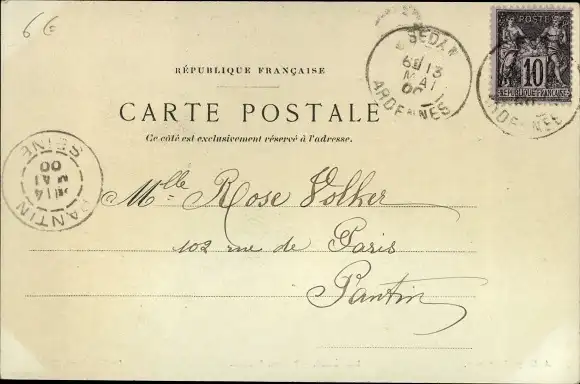 66
SEDAN
13
MAI
00
ARDENNES
POSTE
10
REPUBLIQUE FRANÇAISE
RÉPUBLIQUE FRANÇAISE
CARTE POSTALE
Ce côté est exclusivement réservé à l'adresse.
PANTIN
14
MAI
00
SEINE
Mlle Rose Volker
102 rue de Paris
Pantin